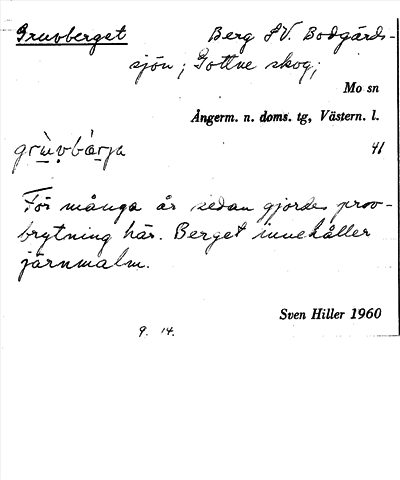 Gruvberget Berg SV. Bodgårds-
sjön; Gottne skog;
Mo sn
Ångerm. n. doms. tg, Västern. l.
grùvbárja 41
För många år sedan gjordes prov-
brytning här. Berget innehåller
järnmalm.
Sven Hiller 1960
9. 14.